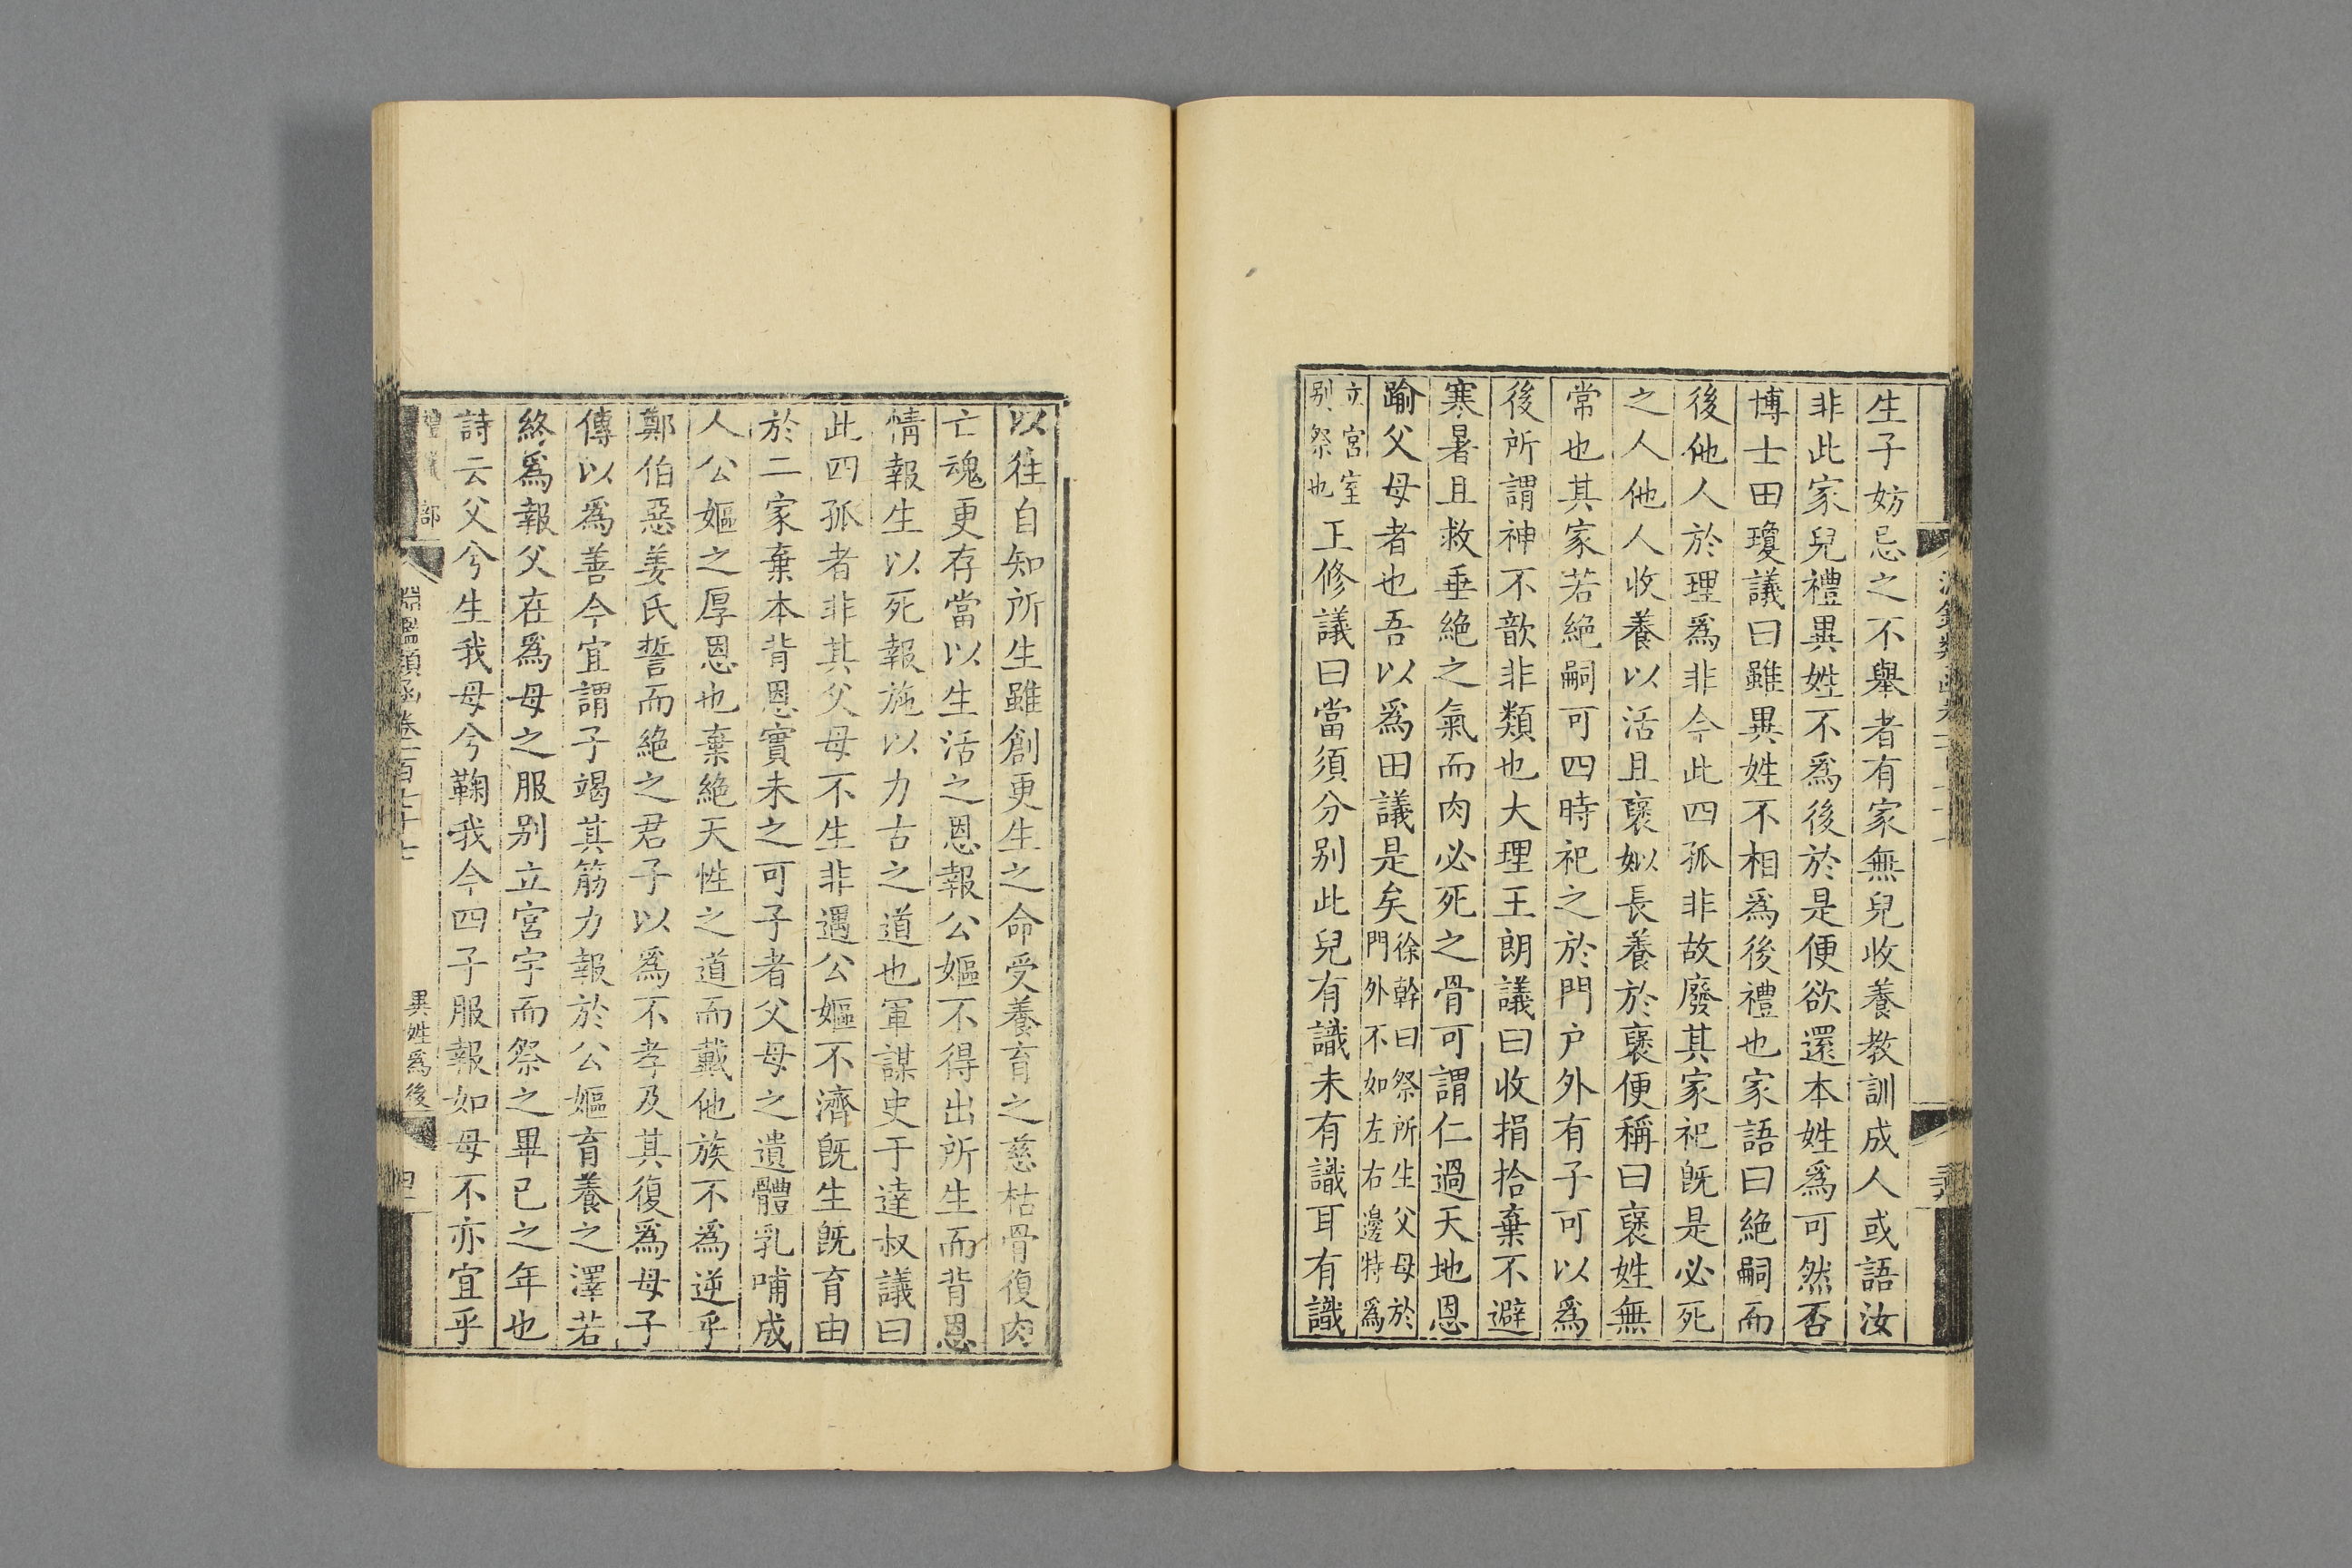 生子妨忌之不舉者有家無兒收養教訓成人或語汝
非此家兒禮異姓不爲後於是便欲還本姓爲可然否
博士田瓊議曰雖異姓不相爲後禮也家語曰絶嗣而
後他人於理爲非今此四孤非故廢其家祀既是必死
之人他人收養以活且褒姒長養於褒便稱曰褒姓無
常也其家若絶嗣可四時祀之於門戶外有子可以爲
後所謂神不歆非類也大理王朗議曰收捐拾棄不避
寒暑且救垂絶之氣而肉必死之骨可謂仁過天地恩
踰父母者也吾以爲田議是矣徐幹曰祭所生父母於
門外不如左右邊特爲
立宮室
别祭也王修議曰當須分别此兒有識未有識耳有識
以往自知所生雖創更生之命受養育之慈枯骨復肉
亡魂更存當以生活之恩報公嫗不得出所生而背恩
情報生以死報施以力古之道也軍謀史于達叔議曰
此四孤者非其父母不生非遇公嫗不濟既生既育由
於二家棄本背恩實未之可子者父母之遺體乳哺成
人公嫗之厚恩也棄絶天性之道而戴他族不爲逆乎
鄭伯惡姜氏誓而絶之君子以爲不孝及其復爲母子
傳以爲善今宜謂子竭其筋力報於公嫗育養之澤若
終爲報父在爲母之服别立宮宇而祭之畢已之年也
詩云父兮生我母兮鞠我今四子服報如母不亦宜乎
淵鑑類函卷二百七十七
異姓爲後